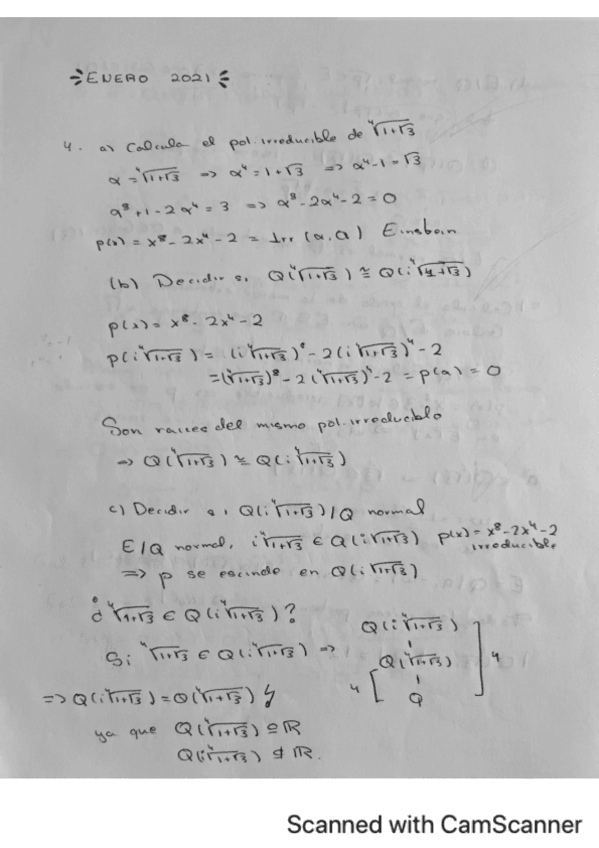 ENERO 2021
4. a) Calcula el pol. irreducible de ⁴√1+√3
α = ⁴√1+√3 ⇒ α⁴ = 1+√3 ⇒ α⁴-1 = √3
α⁸+1-2α⁴ = 3 ⇒ α⁸-2α⁴-2 = 0
p(x) = x⁸-2x⁴-2 = Irr (α,Q)
(b) Decidir si Q(⁴√1+√3) ≅ Q(i⁴√1+√3)
p(x) = x⁸-2x⁴-2
p(i⁴√1+√3) = (i⁴√1+√3)⁸ - 2(i⁴√1+√3)⁴ - 2
= (⁴√1+√3)⁸ - 2(⁴√1+√3)⁴ - 2 = p(α) = 0
Son raíces del mismo pol. irreducible
⇒ Q(⁴√1+√3) ≅ Q(i⁴√1+√3)
c) Decidir si Q(i⁴√1+√3)/Q normal
E/Q normal, i⁴√1+√3 ∈ Q(i⁴√1+√3) p(x) = x⁸-2x⁴-2
irreducible
⇒ p se escinde en Q(i⁴√1+√3)
¿ ⁴√1+√3 ∈ Q(i⁴√1+√3)?
Q(i⁴√1+√3)
Si ⁴√1+√3 ∈ Q(i⁴√1+√3) ⇒
Q(⁴√1+√3)
4
4
Q
⇒ Q(i⁴√1+√3) = Q(⁴√1+√3) ↯
ya que Q(⁴√1+√3) ⊆ ℝ
Q(i⁴√1+√3) ⊄ ℝ.
Scanned with CamScanner